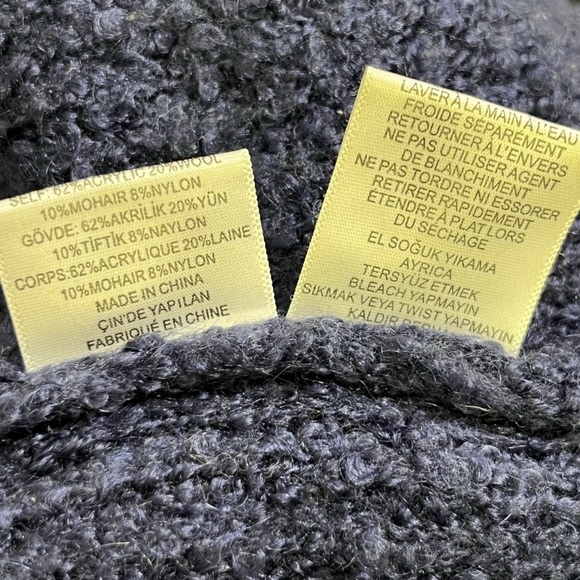 SELF: 62%ACRYLIC 20%WOOL
10%MOHAIR 8%NYLON
GÖVDE: 62%AKRİLİK 20%YÜN
10%TİFTİK 8%NAYLON
CORPS:62%ACRYLIQUE 20%LAINE
10%MOHAIR 8%NYLON
MADE IN CHINA
ÇIN'DE YAPILAN
FABRIQUÉ EN CHINE
LAVER À LA MAIN À L'EAU
FROIDE SÉPAREMENT
RETOURNER À L'ENVERS
NE PAS UTILISER AGENT
DE BLANCHIMENT
NE PAS TORDRE NI ESSORER
RETIRER RAPIDEMENT
ÉTENDRE À PLAT LORS
DU SÉCHAGE
EL SOĞUK YIKAMA
AYRICA
TERSYÜZ ETMEK
BLEACH YAPMAYIN
SIKMAK VEYA TWIST YAPMAYIN
KALDIR